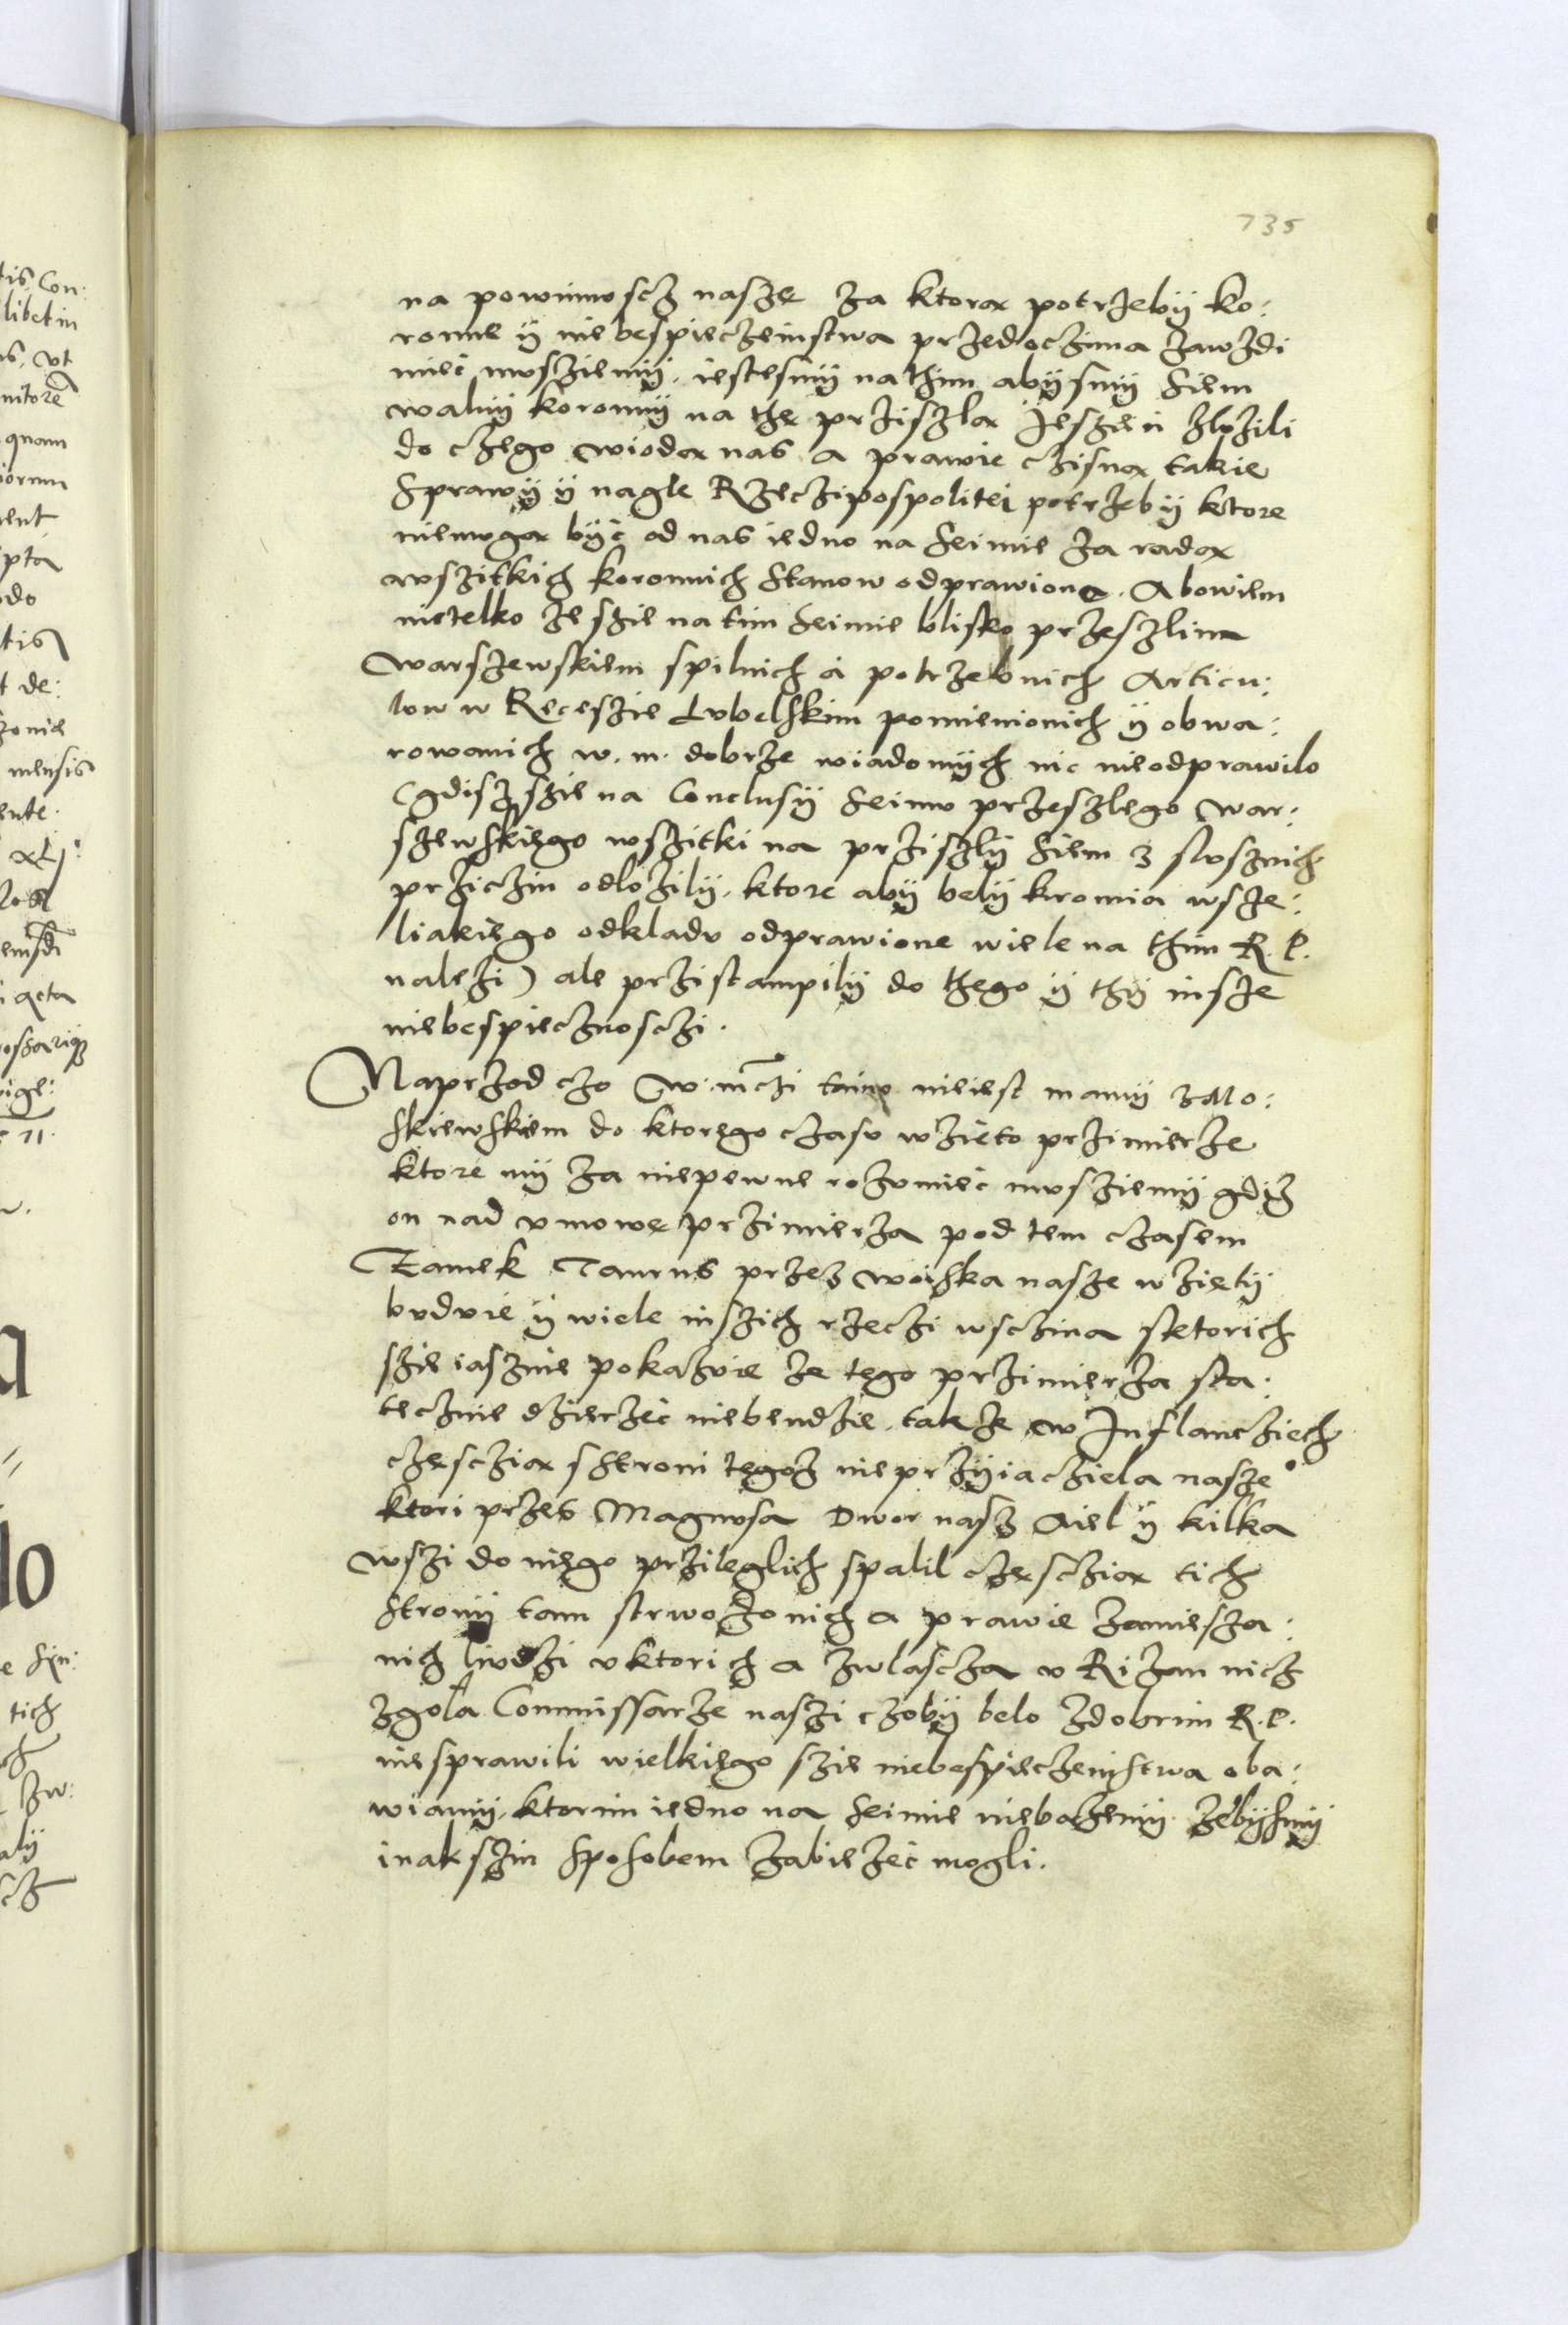 735
na powinnoscz nasze za ktorą potrzebÿ ko:
ronne ÿ niebespieczeinstwa przedoczima zawzdi
mieć mvsziemÿ. iestesmÿ na thim abÿsmÿ Siem
walnÿ koronnÿ na thę przisżlą Jeszień zlożili
do czego wiodą nas a prawie czisną takie
Sprawÿ ÿ nagle Rzeczipospolitei potrzebÿ ktore
niemogą bÿć od nas iedno na Seimie za radą
wszitkich koronnich Stanow odprawione. Abowiem
nietelko że szie na tim Seimie blisko przeszlim
Warszewskiem spilnich á potrzebnich Articu:
low w Recessie Lvbelskim pomienionich ÿ obwa:
rowanich w. m. dobrze wiadomÿch nic nieodprawilo
(gdisz szie na Conclusÿ Seimv przeszlego War:
szewskięgo wszitki na prziszlÿ Siem z slvsznich
prziczin odlożilÿ. ktore abÿ belÿ kromia wsze:
liakięgo odkladv odprawione wiele na thim R. P.
należi) ale przistampilÿ do thego ÿ thÿ insze
niebespiecznosczi.
Naprzod czo W. mczi taino nieiest mamÿ z Mo:
skiewskiem do ktoręgo czasv wzięto przimierze
ktore mÿ za niepewne rozvmieć mvsziemÿ gdiż
on nad vmowę przimierza pod tem czasem
Zamek Taurus przez woiska nasze wzietÿ
bvdvie ÿ wiele inszich rzeczi wsczina sktorich
szie iasznie pokazvie że tęgo przimierza sta:
tecznie dzierżeć niebendzie. takze w Inflancziech
częsczią sstroni tęgoż nieprzÿiacziela nasze°
ktori przes Magnvsa Dwor nasz Aiel ÿ kilka
wszi do nięgo przileglich spalil częsczią tich
stronÿ tam strwożonich a prawie zamiesza:
nich liudzi v ktorich a zwlascza v Rizan nicz
zgola Commissarze naszi czobÿ belo z dobrim R. P.
niesprawili wielkięgo szie niebespieczeinstwa oba:
wiamÿ. ktorim iedno na Seimie niebaczemÿ. żebÿsmÿ
inakszim sposobem zabieżeć mogli.